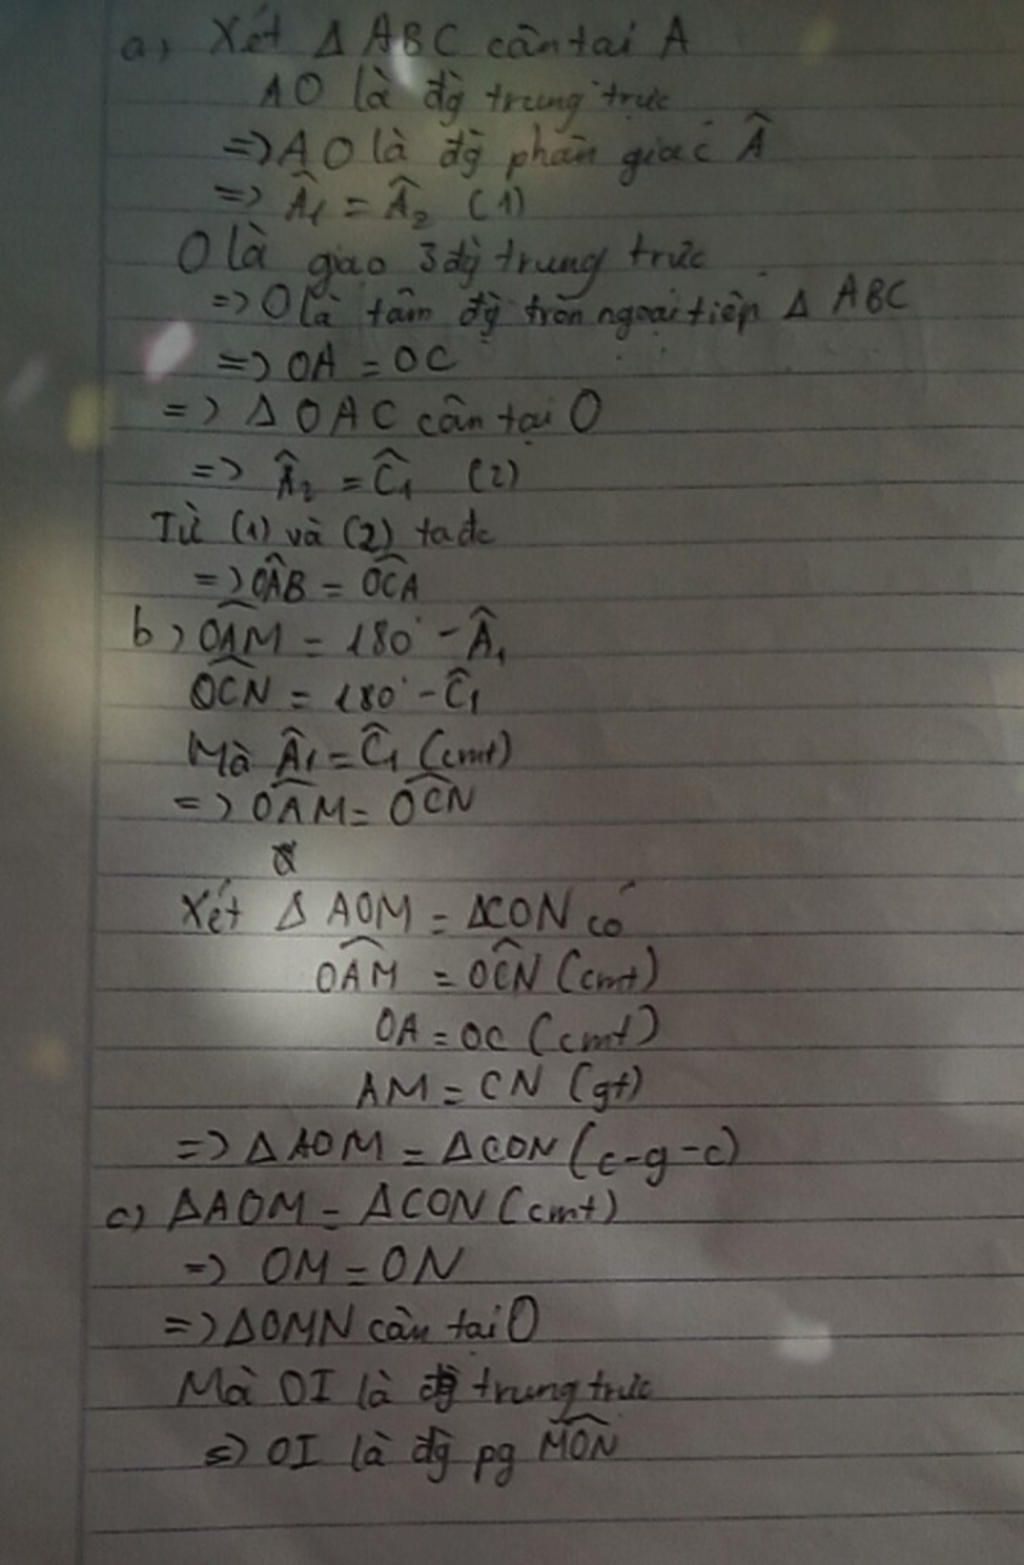 a) Xét Δ ABC cân tai A
AO là đg trung trực
=> AO là đg phân giác Â
=> Â₁ = Â₂ (1)
O là giao 3 đg trung trức
=> O là tâm đg tròn ngoại tiếp Δ ABC
=> OA = OC
=> Δ OAC cân tại O
=> Â₂ = Ĉ₁ (2)
Từ (1) và (2) ta đc
=> OÂB = OĈA
b) OÂM = 180° - Â₁
OĈN = 180° - Ĉ₁
Mà Â₁ = Ĉ₁ (cmt)
=> OÂM = OĈN
Xét Δ AOM = ΔCON có
OÂM = OĈN (cmt)
OA = OC (cmt)
AM = CN (gt)
=> Δ AOM = Δ CON (c-g-c)
c) ΔAOM = ΔCON (cmt)
=> OM = ON
=> ΔOMN cân tai O
Mà OI là đg trung trức
=> OI là đg pg MÔN